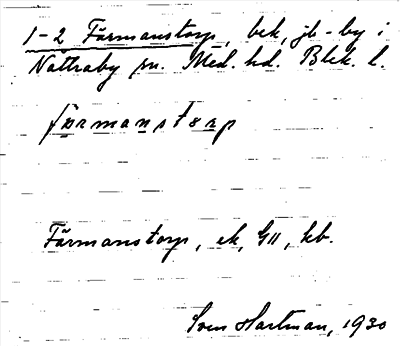 1-2 Färmanstorp, bek, jb-by i
Nättraby sn. Med. hd. Blek. l.
færmanstorp
Färmanstorp, ek, G11, kb.
Sven Hartman, 1930